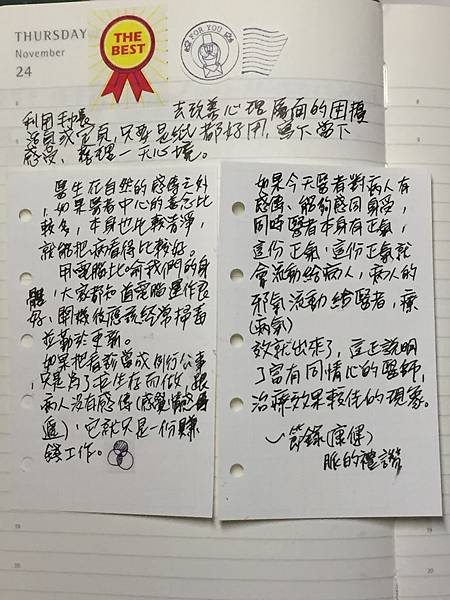 THURSDAY
November
24
THE
BEST
FOR YOU
利用手帳 去改善心理層面的困擾
活頁或定頁,只要是紙都好用,寫下當下
感受、整理一天心境。
醫生在自然的感傳之外
,如果醫者中心的善念比
較多,本身也比較清淨,
就能把病看得比較好。
用電腦比喻我們的身
體,大家都知道電腦運作良
好、開機後應該經常掃毒
並勤於更新。
如果把看診當成例行公事
,只是為了求生存而做,跟
病人沒有感傳(感覺情感
遞),它就只是一份賺
錢工作。
如果今天醫者對病人有
感傳、能夠感同身受,
同時醫者本身有正氣,
這份正氣,這份正氣就
會流動給病人,病人的
邪氣流動給醫者,療
(病氣)
效就出來了,這正說明
了富有同情心的醫師,
治療效果較佳的現象。
~節錄(康健)
脈的禮讚